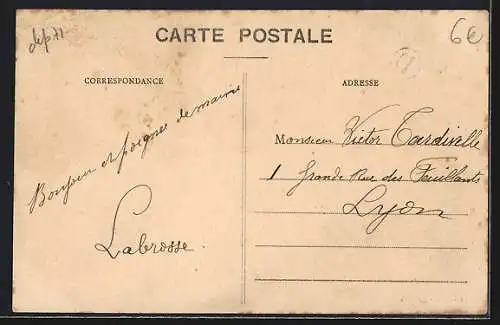 dep 71
6€
CARTE POSTALE
CORRESPONDANCE
ADRESSE
Bonjour et poignes de mains
Labrosse.
Monsieur Victor Tardivelle
1 Grande Rue des Feuillants
Lyon